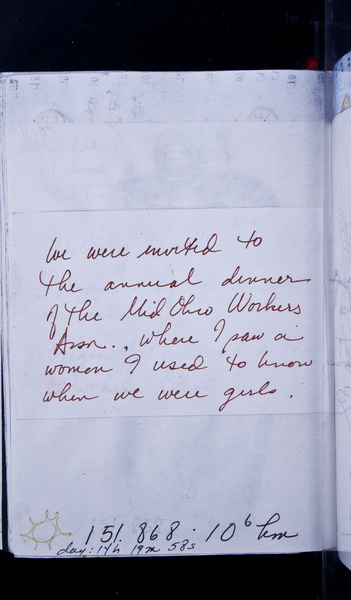 We were invited to
the annual dinner
of the Mid Ohio Workers
Assn., where I saw a
women I used to know
when we were girls.
151.868 · 10⁶ km
day: 14h 19m 58s